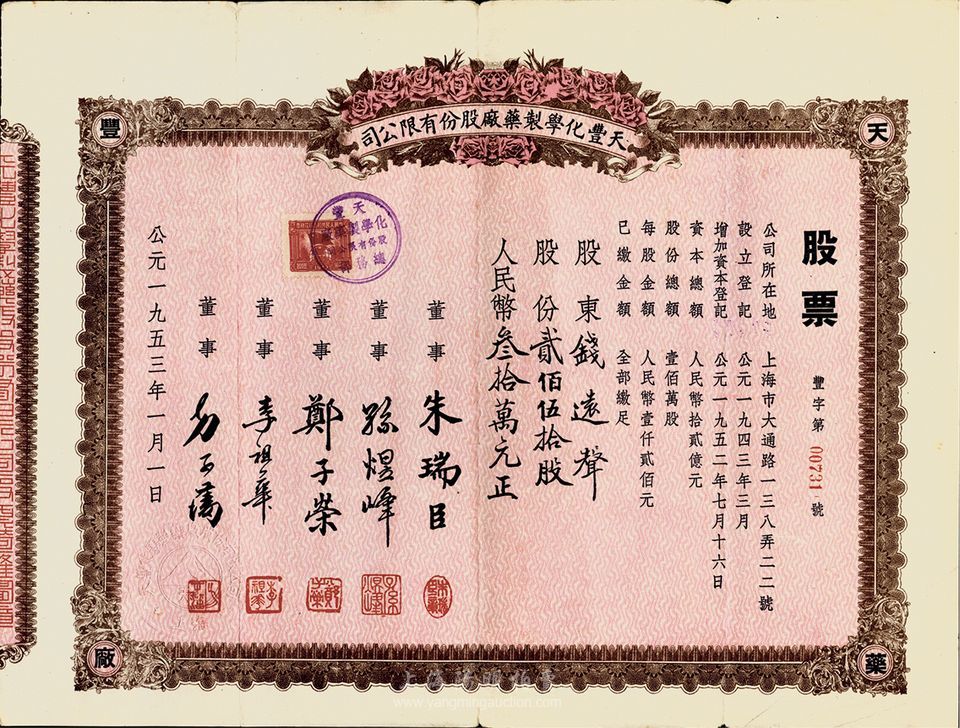 天豐化學製藥廠股份有限公司
天
豐
藥
廠
股票
豐字第 000731 號
公司所在地 上海市大通路一三八弄二二號
設立登記 公元一九四三年三月
增加資本登記 公元一九五二年七月十六日
資本總額 人民幣拾貳億元
股份總額 壹佰萬股
每股金額 人民幣壹仟貳佰元
已繳金額 全部繳足
股東 錢遠聲
股份 貳佰伍拾股
人民幣叁拾萬元正
董事 朱瑞臣
董事 孫煜峰
董事 鄭子榮
董事 李祖華
董事
公元一九五三年一月一日
上海陽明拍賣
www.yangmingauction.com